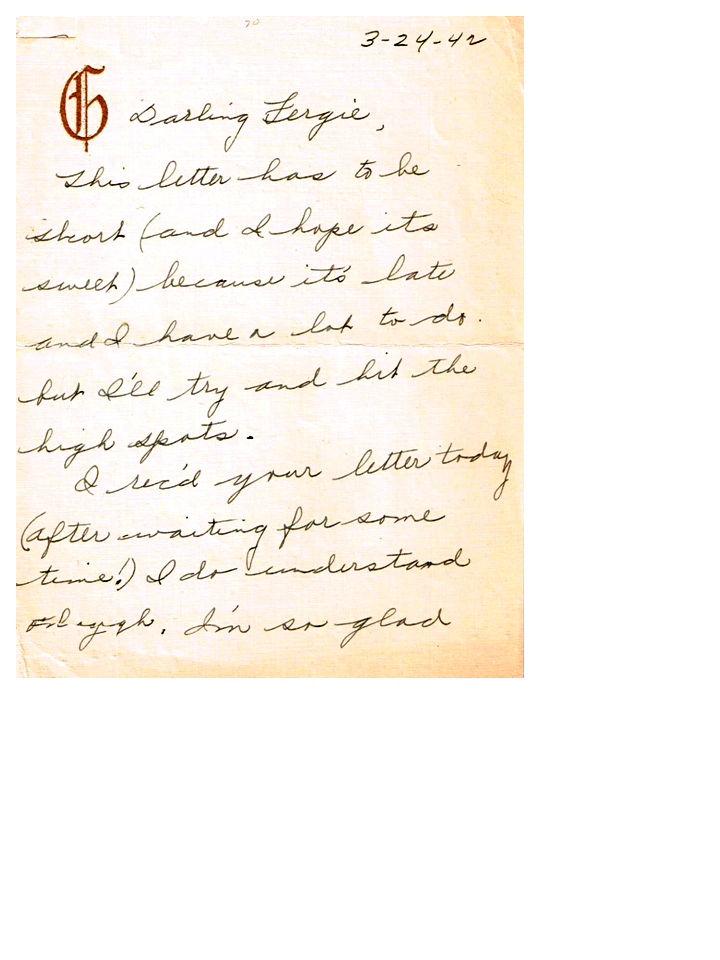 3-24-42
G Darling Fergie,
This letter has to be
short (and I hope its
sweet) because it's late
and I have a lot to do.
but I'll try and hit the
high spots.
I rec'd your letter today
(after waiting for some
time!) I do understand
I'm so glad